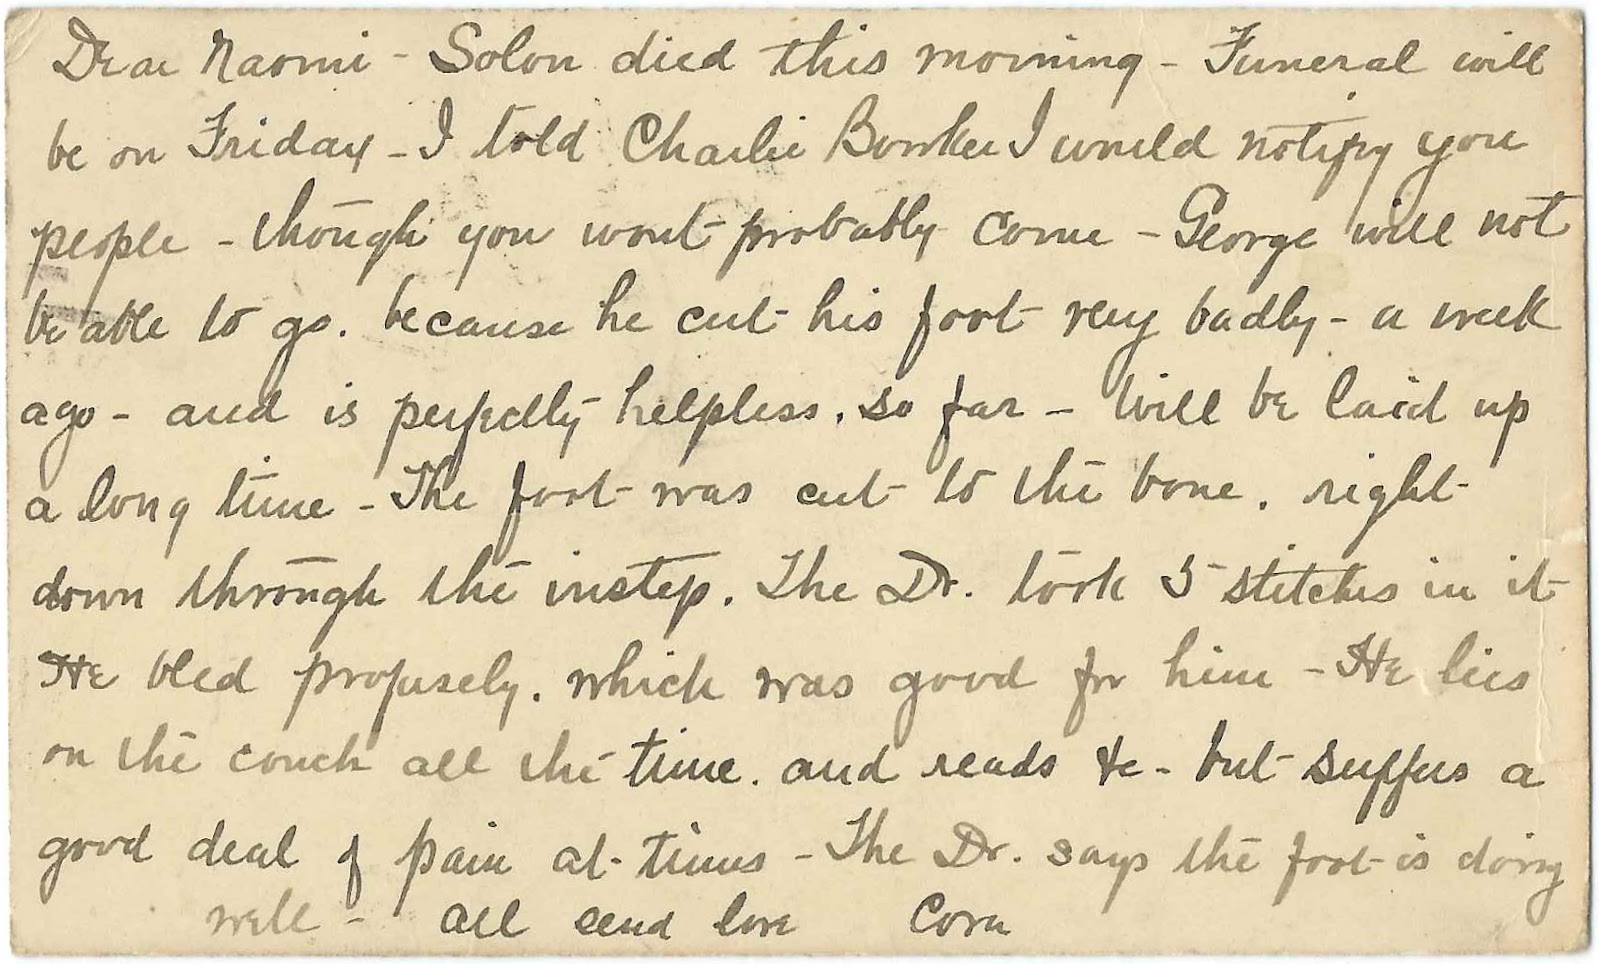 Dear Naomi - Solon died this morning - Funeral will
be on Friday - I told Charlie Bowker I would notify you
people - though you wont probably come - George will not
be able to go. because he cut his foot very badly - a week
ago - and is perfectly helpless. so far - Will be laid up
a long time - The foot was cut to the bone. right
down through the instep. The Dr. took 5 stitches in it
He bled profusely. which was good for him - He lies
on the couch all the time. and reads &c - but suffers a
good deal of pain at times - The Dr. says the foot is doing
well - all send love Cora